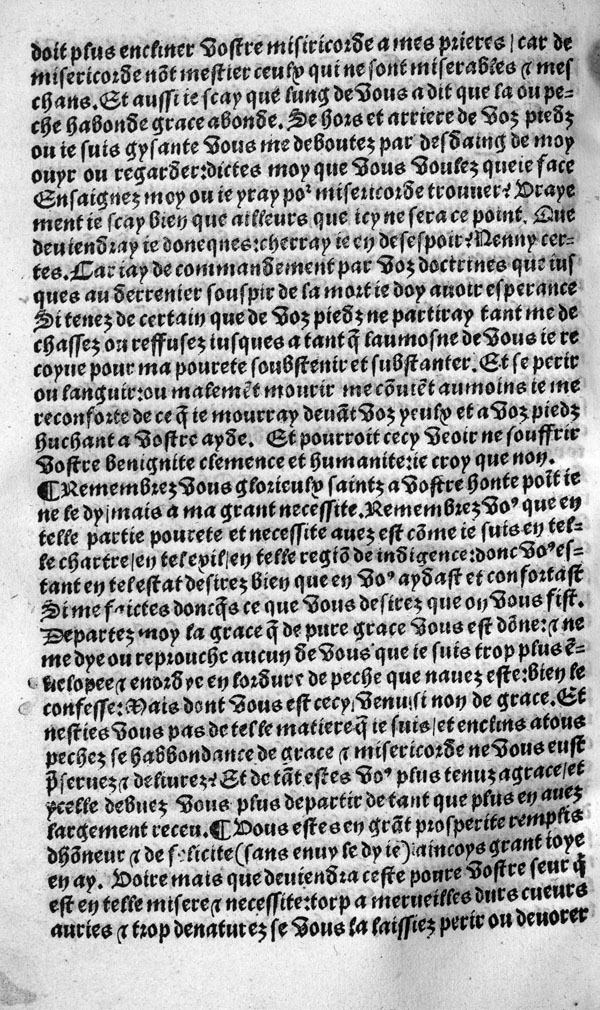 doit plus encliner Vostre misiricorde a mes prieres / car de
misericorde nõt mestier ceulx qui ne sont miserables ⁊ mes
chans. Et aussi ie scay que lung de Vous a dit que la ou pe-
che habonde grace abonde. Se hors et arriere de Voz piedz
ou ie suis gysante Vous me deboutez par desdaing de moy
ouyr ou regarder: dictes moy que Vous Voulez que ie face
Ensaignez moy ou ie yray poꝰ misericorde trouuer? Vraye
ment ie scay bien que ailleurs que icy ne sera ce point. Que
deuiendray ie doneques: cherray ie en desespoir? Nenny cer-
tes. Car iay de commandement par Voz doctrines que ius
ques au derrenier souspir de la mort ie doy auoir esperance
Si tenez de certain que de Voz piedz ne partiray tant me de
chassez ou reffusez iusques a tant q̃ laumosne de Vous ie re
coyue pour ma pourete soubstenir et substanter. Et se perir
ou languir: ou malemẽt mourir me cõuiẽt aumoins ie me
reconforte de ce q̃ ie mourray deuãt Voz yeulx et a Voz piedz
huchant a Vostre ayde. Et pourroit cecy Veoir ne souffrir
Vostre benignite clemence et humanite: ie croy que non.
¶Remembrez Vous glorieulx saintz a Vostre honte poĩt ie
ne le dy / mais a ma grant necessite. Remembrez Voꝰ que en
telle partie pourete et necessite auez est cõme ie suis en tel-
le chartre / en tel exil / en telle regiõ de indigence: donc Voꝰ es-
tant en tel estat desirez bien que en Voꝰ aydast et confortast
Si me faictes doncq̃s ce que Vous desirez que on Vous fist.
Departez moy la grace q̃ de pure grace Vous est dõne: ⁊ ne
me dye ou reprouche aucun de Vous que ie suis trop plus ẽ-
uelopee ⁊ enordye en lordure de peche que nauez este: bien le
confesse: Mais dont Vous est cecy Venu / si non de grace. Et
nesties Vous pas de telle matiere q̃ ie suis / et enclins a tous
pechez se habbondance de grace ⁊ misericorde ne Vous eust
p̃seruez ⁊ deliurez? Et de tãt estes Voꝰ plus tenuz a grace / et
ycelle debuez Vous plus departir de tant que plus en auez
largement receu. ¶Vous estes en grãt prosperite remplis
dhõneur ⁊ de felicite (sans enuy le dy ie) aincoys grant ioye
en ay. Voire mais que deuiendra ceste poure Vostre seur q̃
est en telle misere ⁊ necessite: torp a merueilles durs cueurs
auries ⁊ trop denaturez se Vous la laissiez perir ou deuorer